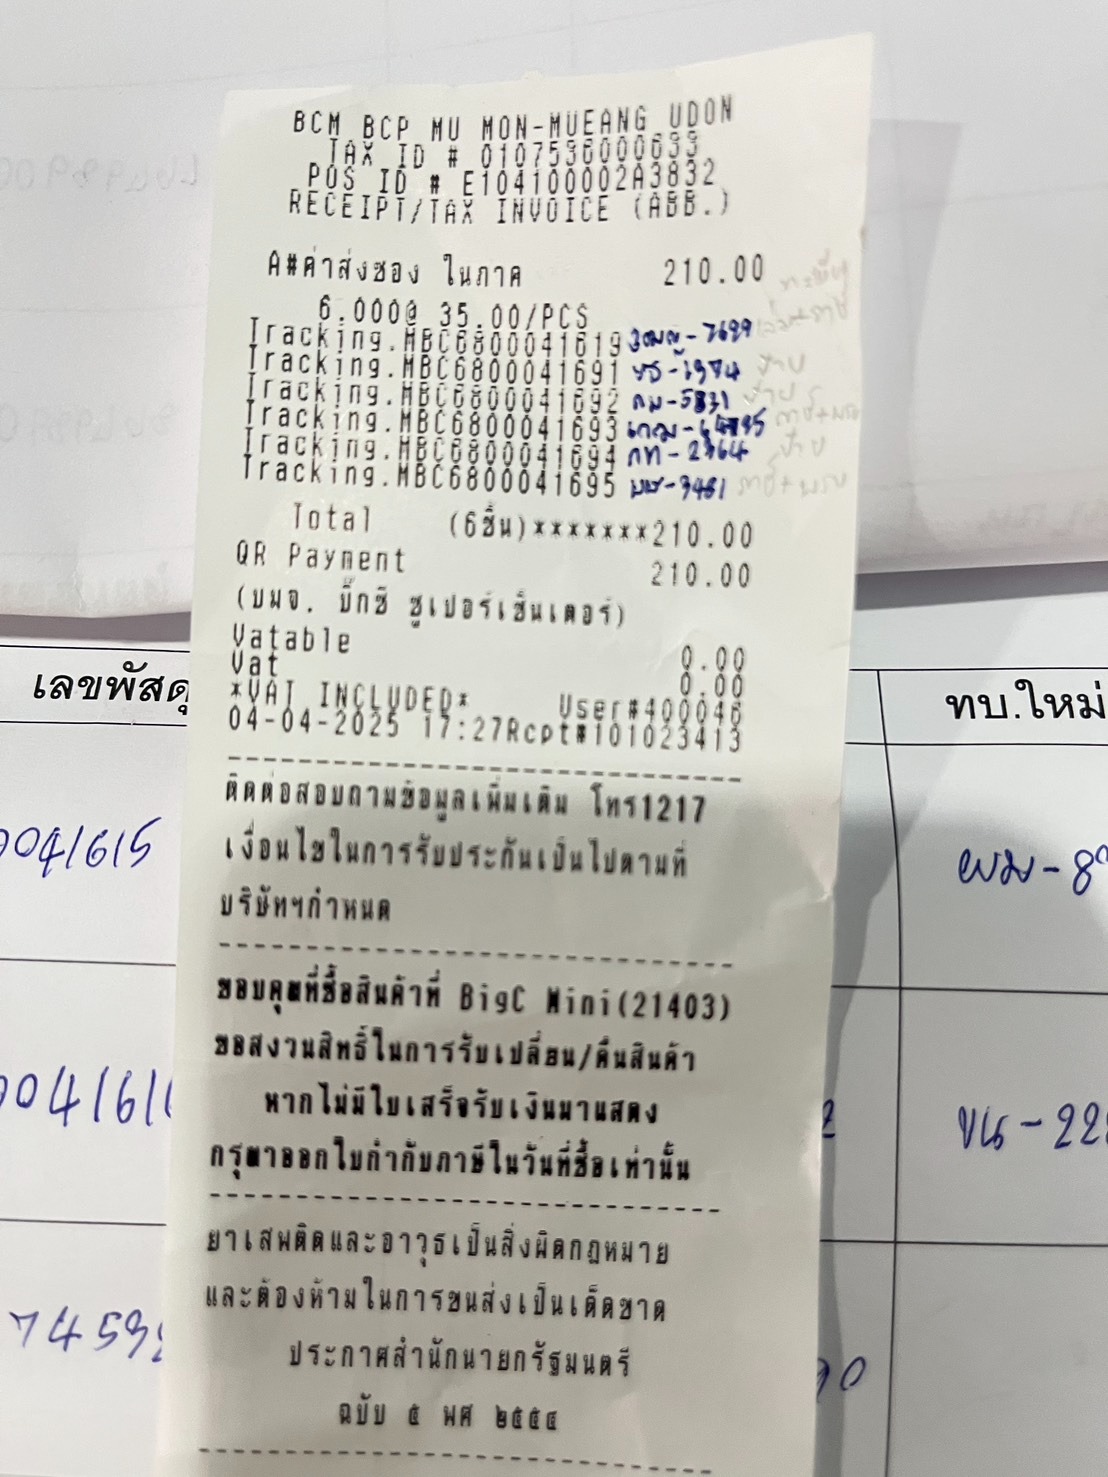 BCM BCP MU MON-MUEANG UDON
TAX ID # 0107536000633
POS ID # E104100002A3832
RECEIPT/TAX INVOICE (ABB.)
A#ค่าส่งซอง ในภาค 210.00
6.000@ 35.00/PCS
Tracking.MBC6800041619
Tracking.MBC6800041691 ขธ-1974
Tracking.MBC6800041692 กม-5831
Tracking.MBC6800041693
Tracking.MBC6800041694 กท-2764
Tracking.MBC6800041695
Total (6ชิ้น)*******210.00
QR Payment 210.00
(บมจ. บิ๊กซี ซูเปอร์เซ็นเตอร์)
Vatable 0.00
Vat 0.00
*VAT INCLUDED* User#400046
04-04-2025 17:27Rcpt#101023413
ติดต่อสอบถามข้อมูลเพิ่มเติม โทร1217
เงื่อนไขในการรับประกันเป็นไปตามที่
บริษัทฯกำหนด
ขอบคุณที่ซื้อสินค้าที่ BigC Mini(21403)
ขอสงวนสิทธิ์ในการรับเปลี่ยน/คืนสินค้า
หากไม่มีใบเสร็จรับเงินมาแสดง
กรุณาออกใบกำกับภาษีในวันที่ซื้อเท่านั้น
ยาเสพติดและอาวุธเป็นสิ่งผิดกฎหมาย
และต้องห้ามในการขนส่งเป็นเด็ดขาด
ประกาศสำนักนายกรัฐมนตรี
ฉบับ ๕ พศ ๒๕๕๔
เลขพัสดุ ทบ.ใหม่
0041615 ผม-8
004161 ขน-22
7459